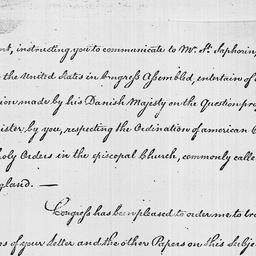 nt, instructing you to communicate to Mr. St. Saphorin,
the United States in Congress Assembled, entertain of
ion made by his Danish Majesty on the Question pro
ister by you, respecting the Ordination of american C
oly Orders in the episcopal Church, commonly calle
gland. —
Congress has been pleased to order me to tra
es of your Letter and the other Papers on this Subje